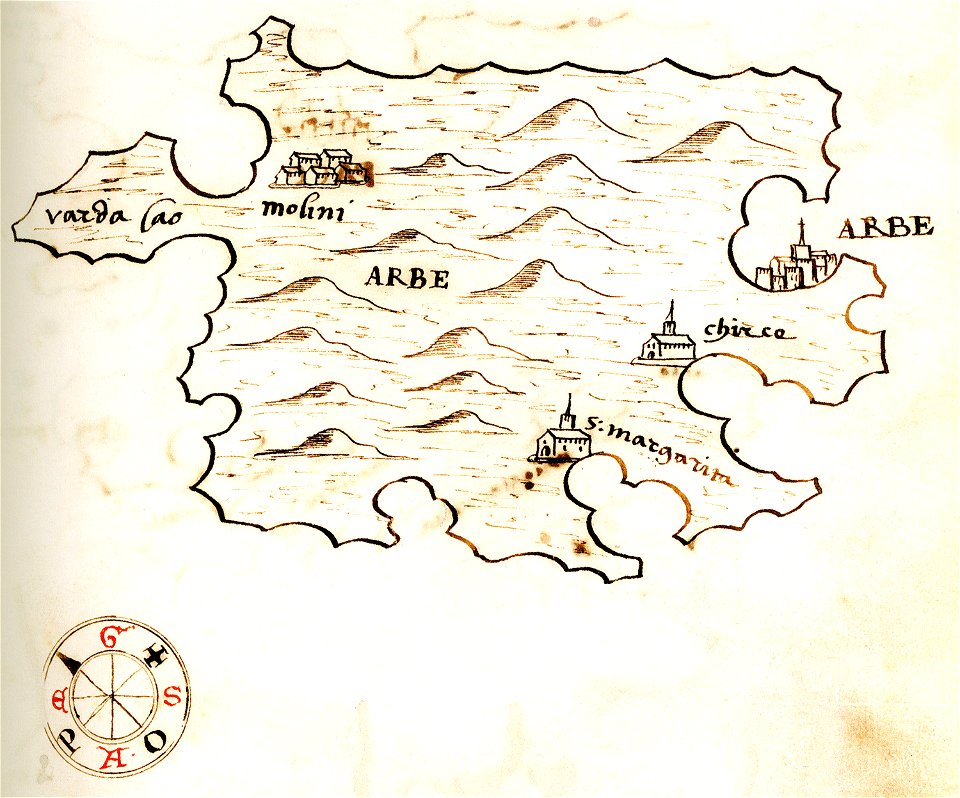 varda sao
molini
ARBE
ARBE
chirco
s: margarita
G
S
O
A
P
E